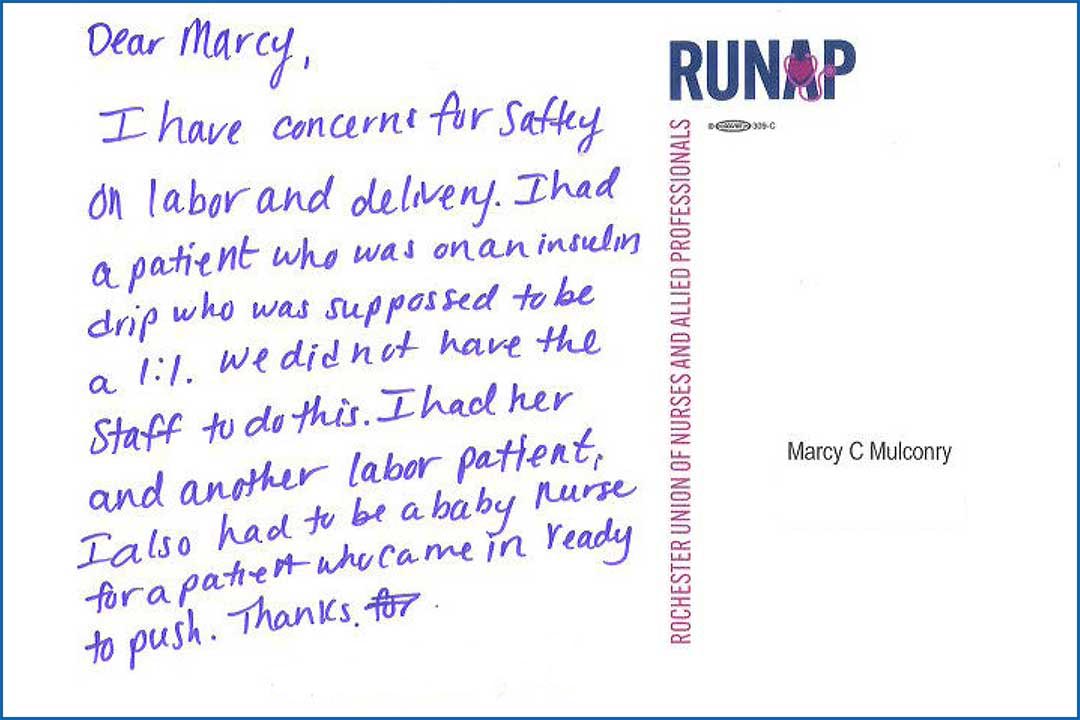 Dear Marcy,
I have concerns for Saftey
on labor and delivery. I had
a patient who was on an insulin
drip who was suppossed to be
a 1:1. We did not have the
Staff to do this. I had her
and another labor patient,
I also had to be a baby nurse
for a patient who came in ready
to push. Thanks. for
RUNAP
309-C
ROCHESTER UNION OF NURSES AND ALLIED PROFESSIONALS
Marcy C Mulconry